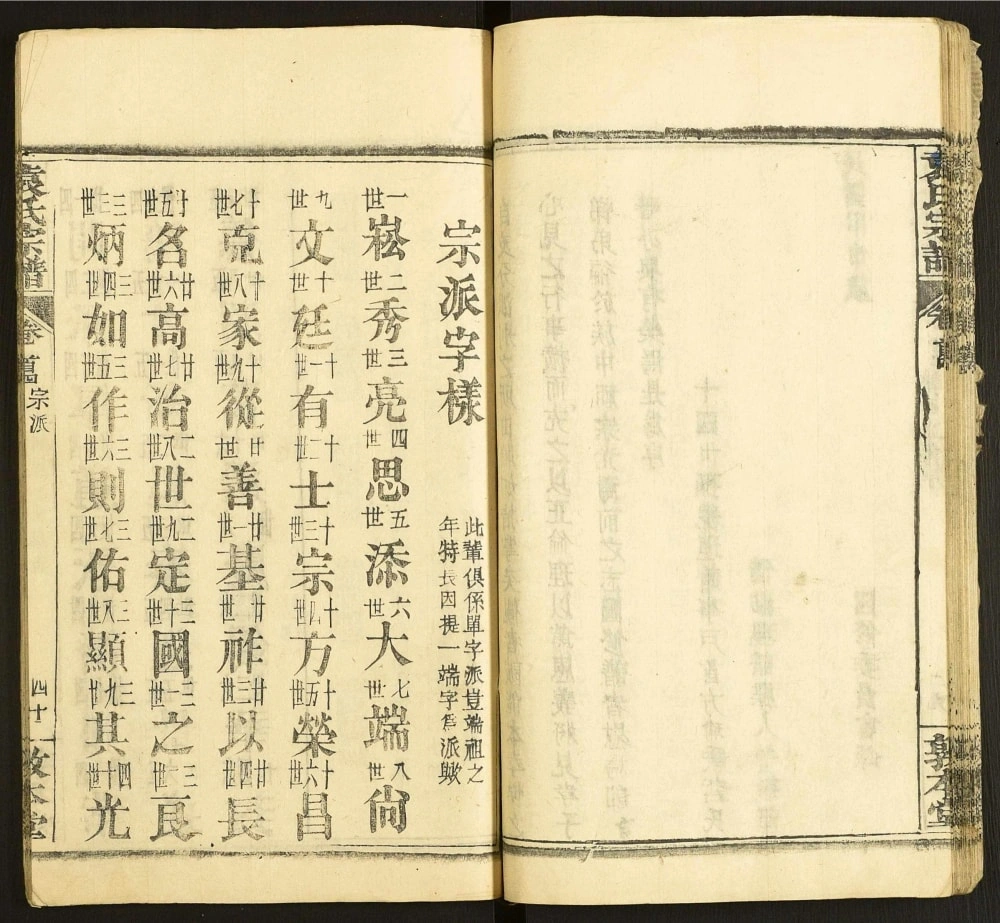 袁氏宗譜
敦本堂
宗派字樣
此輩俱係單字派豈端祖之
年特長因提一端字爲派歟
一世崧二世秀三世亮四世思五世添六世大七世端八世尙
九世文十世廷十一世有十二世士十三世宗十四世方十五世榮十六世昌
十七世克十八世家十九世從廿世善廿一世基廿二世祚廿三世以廿四世長
廿五世名廿六世高廿七世治二八世世二九世定三十世國三一世之三二世良
三三世炳三四世如三五世作三六世則三七世佑三八世顯三九世其四十世光
袁氏宗譜
卷
宗派
四十
敦本堂